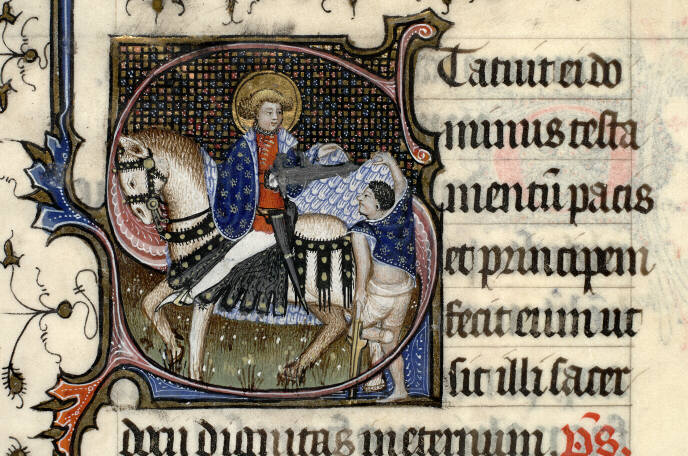 Statuit ei do
minus testa
mentū pacis
et principem
fecit eum ut
sit illi sacer
docii dignitas in eternum. Ps̄.